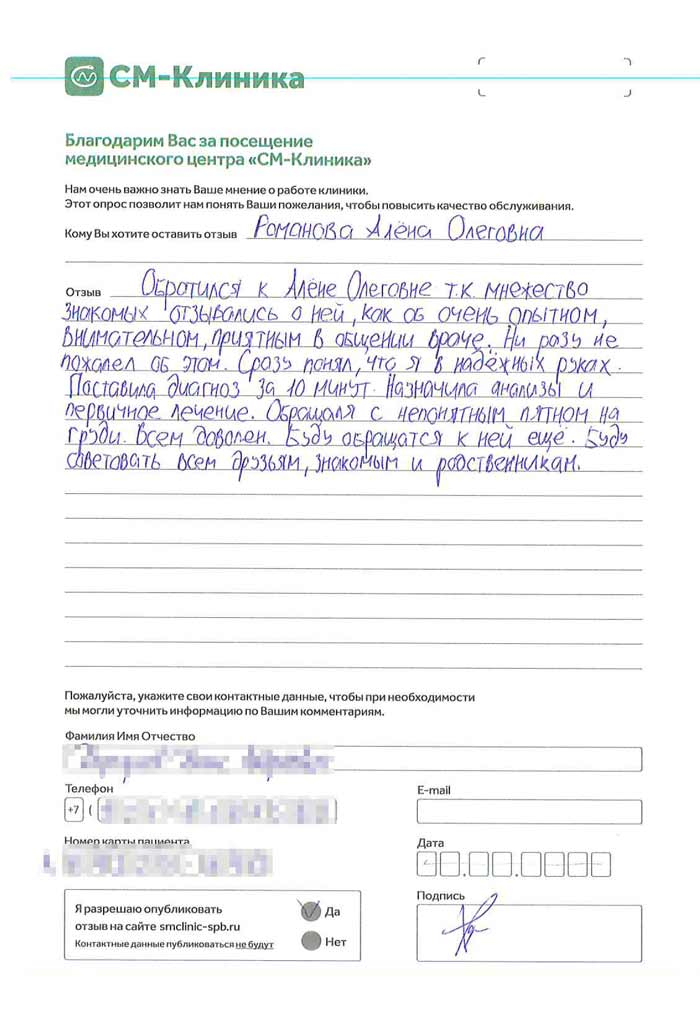 СМ-Клиника
Благодарим Вас за посещение
медицинского центра «СМ-Клиника»
Нам очень важно знать Ваше мнение о работе клиники.
Этот опрос позволит нам понять Ваши пожелания, чтобы повысить качество обслуживания.
Кому Вы хотите оставить отзыв Романова Алёна Олеговна
Отзыв Обратился к Алёне Олеговне т.к. мнежество
знакомых отзывались о ней, как об очень опытном,
внимательном, приятным в общении враче. Ни разу не
пожалел об этом. Сразу понял, что я в надёжных руках.
Поставила диагноз за 10 минут. Назначила анализы и
первичное лечение. Обращаля с непонятным пятном на
груди. Всем доволен. Буду обращатся к ней ещё. Буду
советовать всем друзьям, знакомым и родственникам.
Пожалуйста, укажите свои контактные данные, чтобы при необходимости
мы могли уточнить информацию по Вашим комментариям.
Фамилия Имя Отчество
Телефон E-mail
+7 (
Номер карты пациента Дата
Подпись
Я разрешаю опубликовать Да
отзыв на сайте smclinic-spb.ru
Контактные данные публиковаться не будут Нет